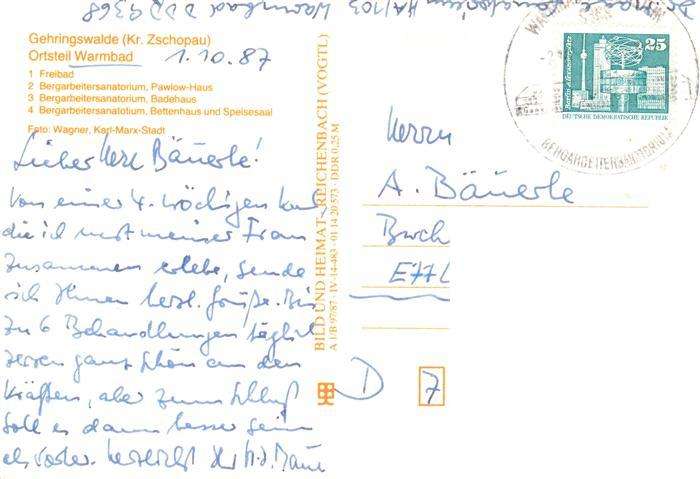 Gehringswalde (Kr. Zschopau)
Ortsteil Warmbad
1.10.87
1 Freibad
2 Bergarbeitersanatorium, Pawlow-Haus
3 Bergarbeitersanatorium, Badehaus
4 Bergarbeitersanatorium, Bettenhaus und Speisesaal
Foto: Wagner, Karl-Marx-Stadt
Lieber Herr Bäuerle!
Von einer 4-wöchigen Kur,
die ich mit meiner Frau
zusammen erlebe, sende
ich Ihnen herzl. Grüße. Bis
zu 6 Behandlungen täglich
zerren ganz schön an den
Kräften, aber zum Schluß
soll es dann besser sein
als vorher. Herzlichst Ihr
BILD UND HEIMAT · REICHENBACH (VOGTL)
A 1/B 97/87 · IV-14-483 · 01 14 20 573 · DDR 0,25 M
Warmbad DDR 9368
25
Berlin, Alexanderplatz
DEUTSCHE DEMOKRATISCHE REPUBLIK
BERGARBEITERSANATORIUM
Herrn
A. Bäuerle
D
7